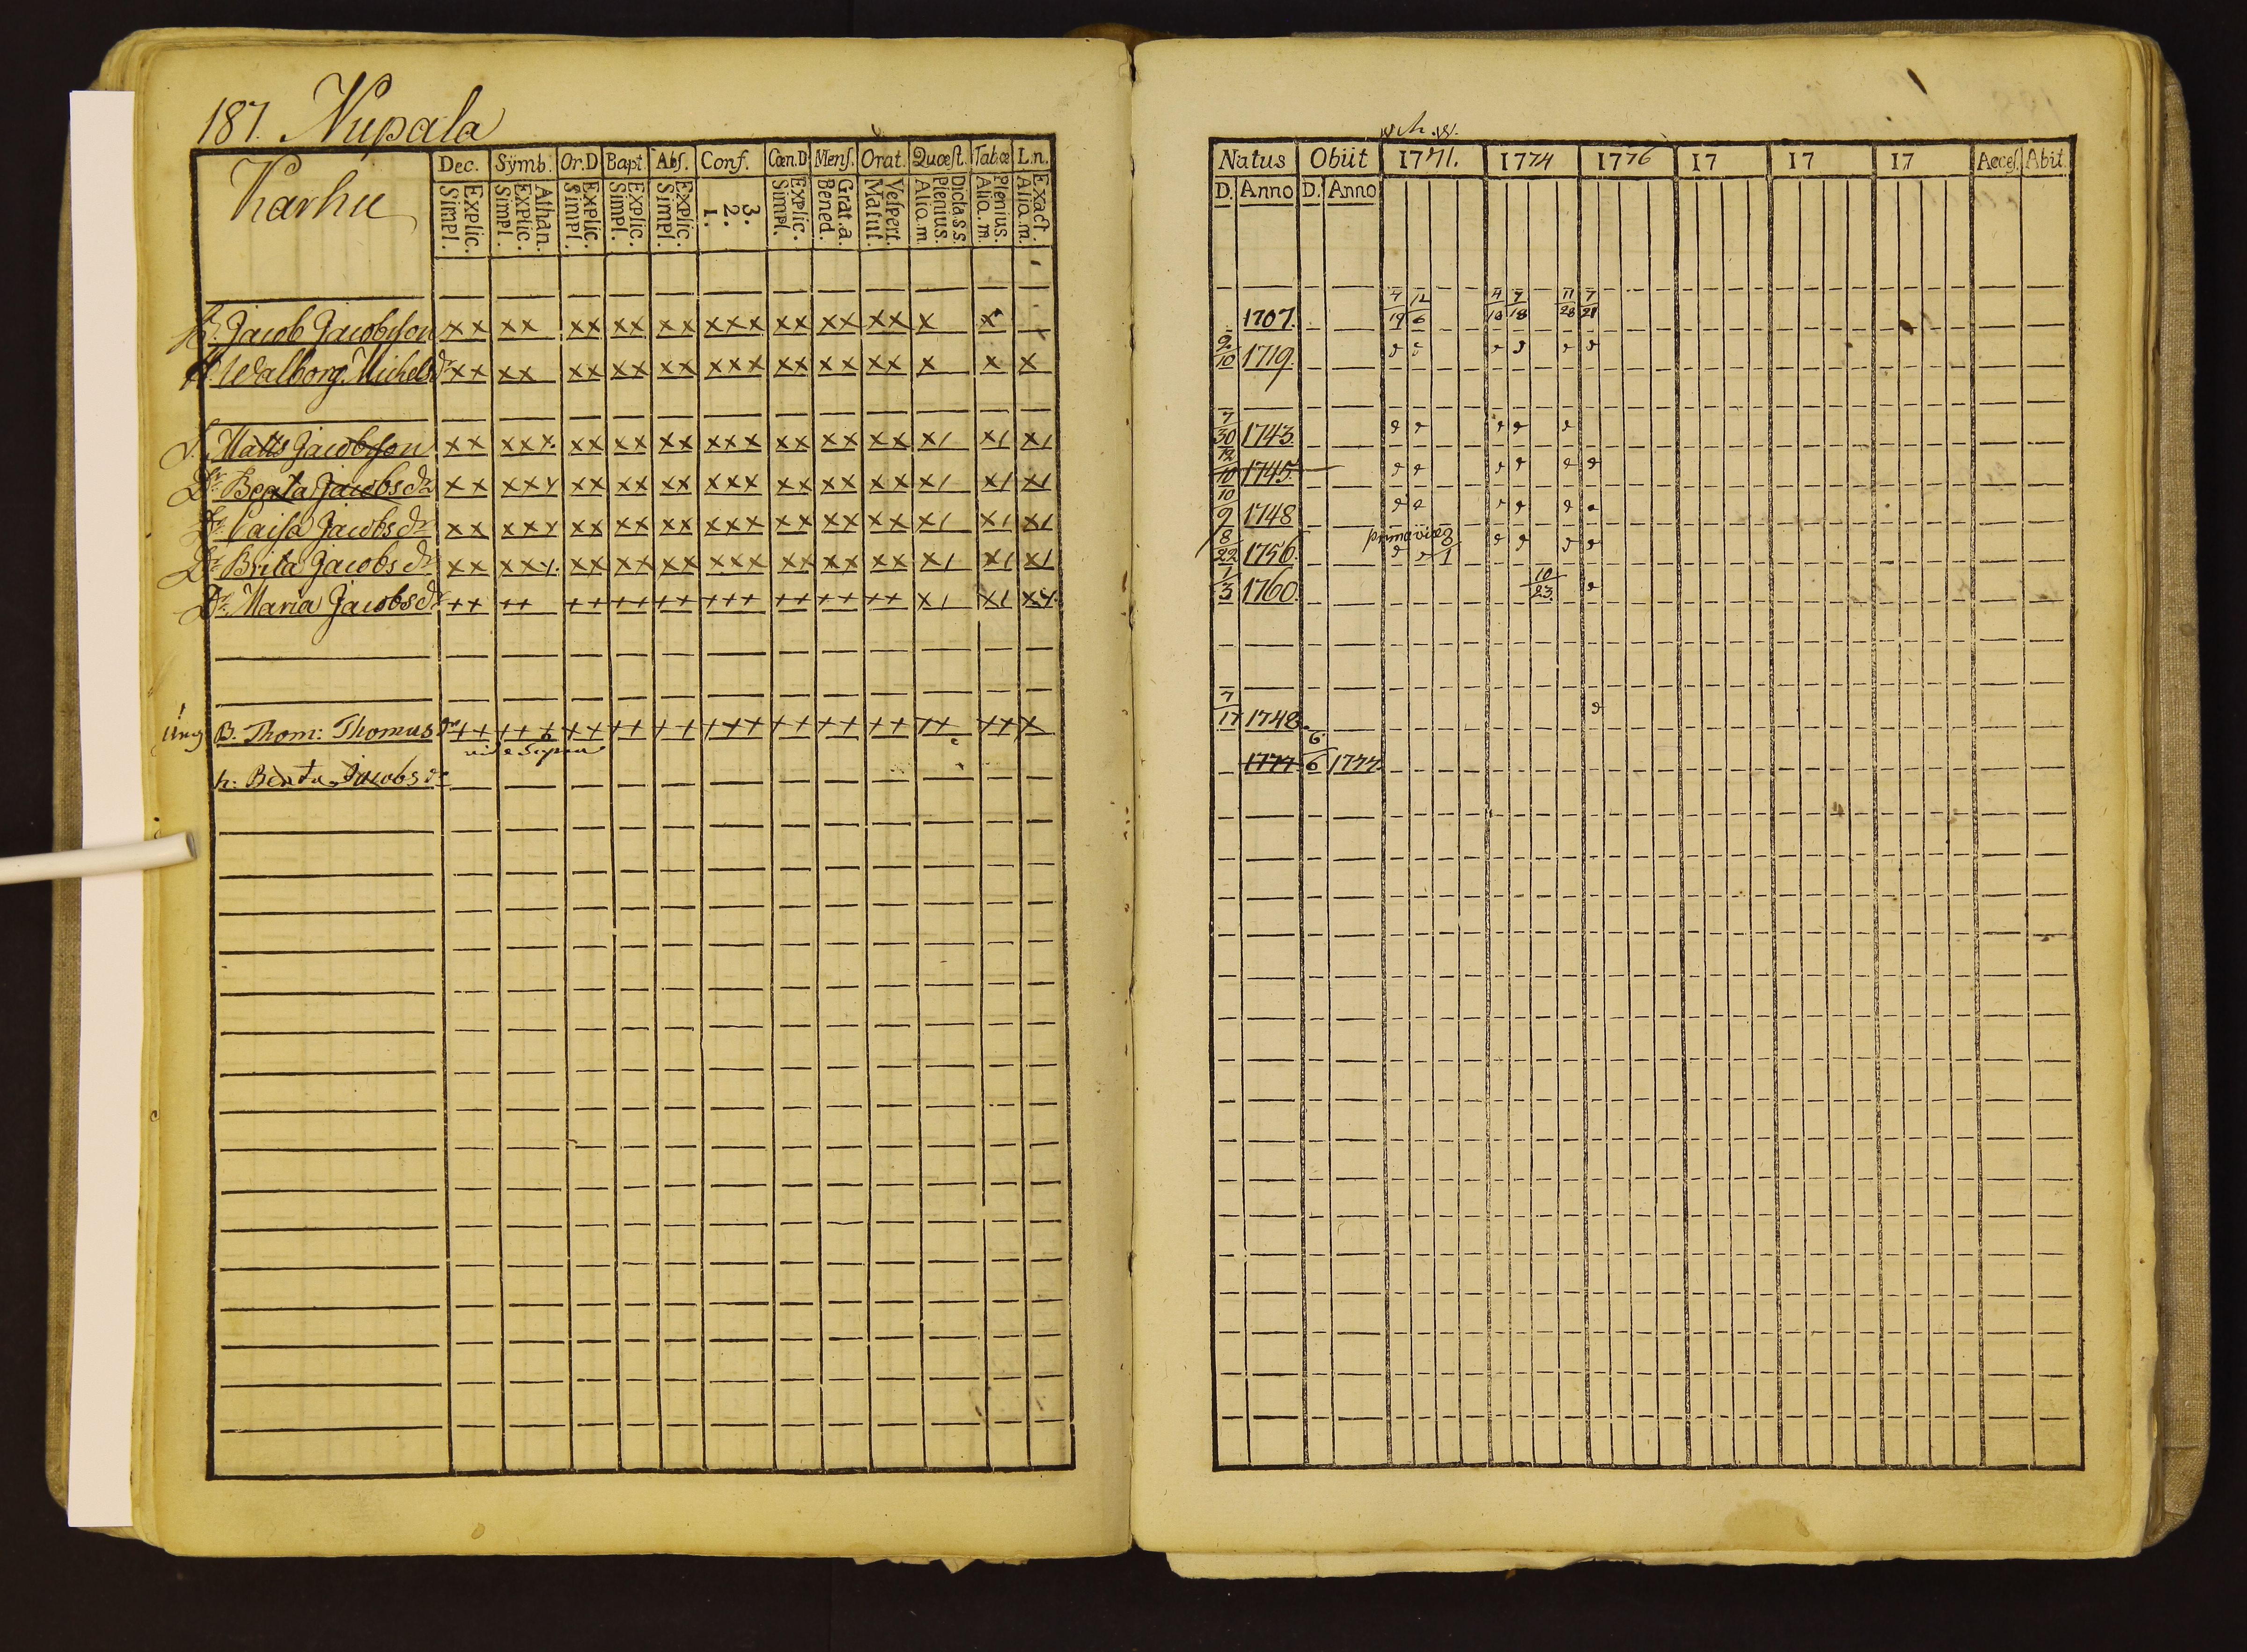 187. Nupala
Karhu
Dec. Sÿmb. Or.D Bapt. Abſ. Conf. Cœn.D Menſ. Orat. Quœſt. Tab.œ L.n.
Explic. Simpl. Athan. Explic. Simpl. Explic. Simpl. Explic. Simpl. Explic. Simpl. 3. 2. 1. Explic. Simpl. Grat.a. Bened. Veſpert. Matut. Dicta.s.s. Plenius. Aliq.m. Plenius. Aliq.m. Exact. Aliq.m.
B. Jacob Jacobsson xx xx xx xx xx xxx xx xx xx x x
H. Walborg Michelsdr xx xx xx xx xx xxx xx xx xx x x x
S. Matts Jacobsson xx xxx xx xx xx xxx xx xx xx x/ x/ x/
Dr. Beata Jacobsdr xx xxx xx xx xx xxx xx xx xx x/ x/ x/
Dr. Caisa Jacobsdr xx xxx xx xx xx xxx xx xx xx x/ x/ x/
Dr. Brita Jacobsdr xx xxx xx xx xx xxx xx xx xx x/ x/ x/
Dr. Maria Jacobsdr ++ ++ ++ ++ ++ +++ ++ ++ ++ x/ x/ xx
B. Thom: Thomas
vide supra
h: Beata Jacobsdr
Natus Obiit 1771. 1774 1776 17 17 17 Acceſ. Abit
D. Anno D. Anno
4/19 12/6 4/10 7/18 11/28 7/21
1707.
2/10 1719.
7/30 1743.
12/10 1745.
10/9 1748
prima vice
8/22 1756.
1/3 1760. 10/23.
7/17 1748.
1777 6/6 1777.